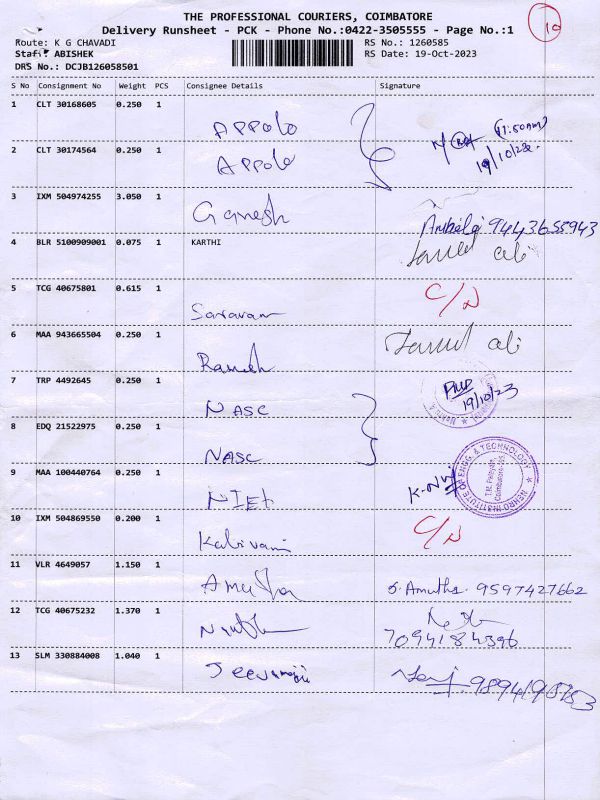 THE PROFESSIONAL COURIERS, COIMBATORE
10
Delivery Runsheet - PCK - Phone No.:0422-3505555 - Page No.:1
Route: K G CHAVADI
RS No.: 1260585
Staff: ABISHEK
RS Date: 19-Oct-2023
DRS No.: DCJB126058501
S No Consignment No Weight PCS Consignee Details Signature
1 CLT 30168605 0.250 1
APPolo
(11.50AM)
2 CLT 30174564 0.250 1
APPolo
3 IXM 504974255 3.050 1
Ganesh
9443655943
4 BLR 5100909001 0.075 1 KARTHI
5 TCG 40675801 0.615 1
Saravan
C/N
6 MAA 943665504 0.250 1
Ramesh
7 TRP 4492645 0.250 1
NASC
19/10/23
8 EDQ 21522975 0.250 1
NASC
NEHRU INSTITUTE OF ENGG. & TECHNOLOGY
T.M. Palayam,
Coimbatore-105
9 MAA 100440764 0.250 1
NIET
10 IXM 504869550 0.200 1
Kalaivani
C/N
11 VLR 4649057 1.150 1
Amutha
S. Amutha. 9597427662
12 TCG 40675232 1.370 1
7094184396
13 SLM 330884008 1.040 1